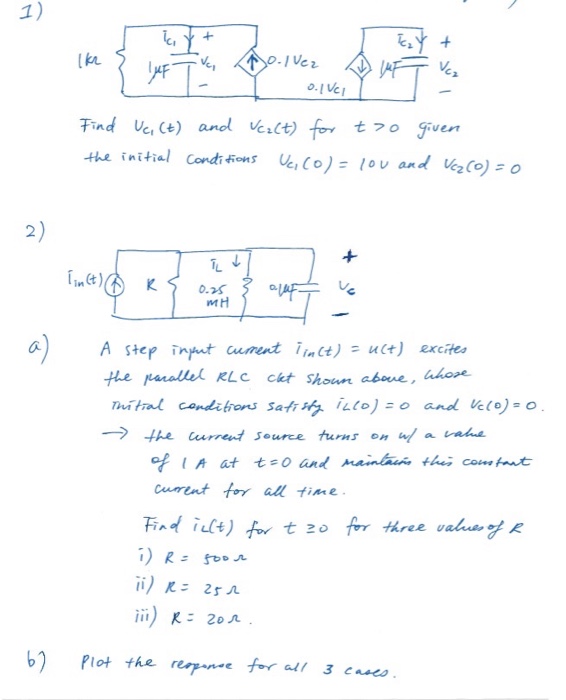 1)
1kΩ
iC1 +
1μF VC1
-
0.1VC2
0.1VC1
iC2 +
1μF VC2
-
Find VC1(t) and VC2(t) for t>0 given
the initial conditions VC1(0) = 10V and VC2(0) = 0
2)
iin(t)
R
iL
0.25
mH
0.1μF
+
Vc
-
a) A step input current iin(t) = u(t) excites
the parallel RLC ckt shown above, whose
initial conditions satisfy iL(0) = 0 and Vc(0) = 0.
→ the current source turns on w/ a value
of 1 A at t=0 and maintains this constant
current for all time.
Find iL(t) for t ≥ 0 for three values of R
i) R = 500 Ω
ii) R = 25 Ω
iii) R = 20 Ω.
b) Plot the response for all 3 cases.